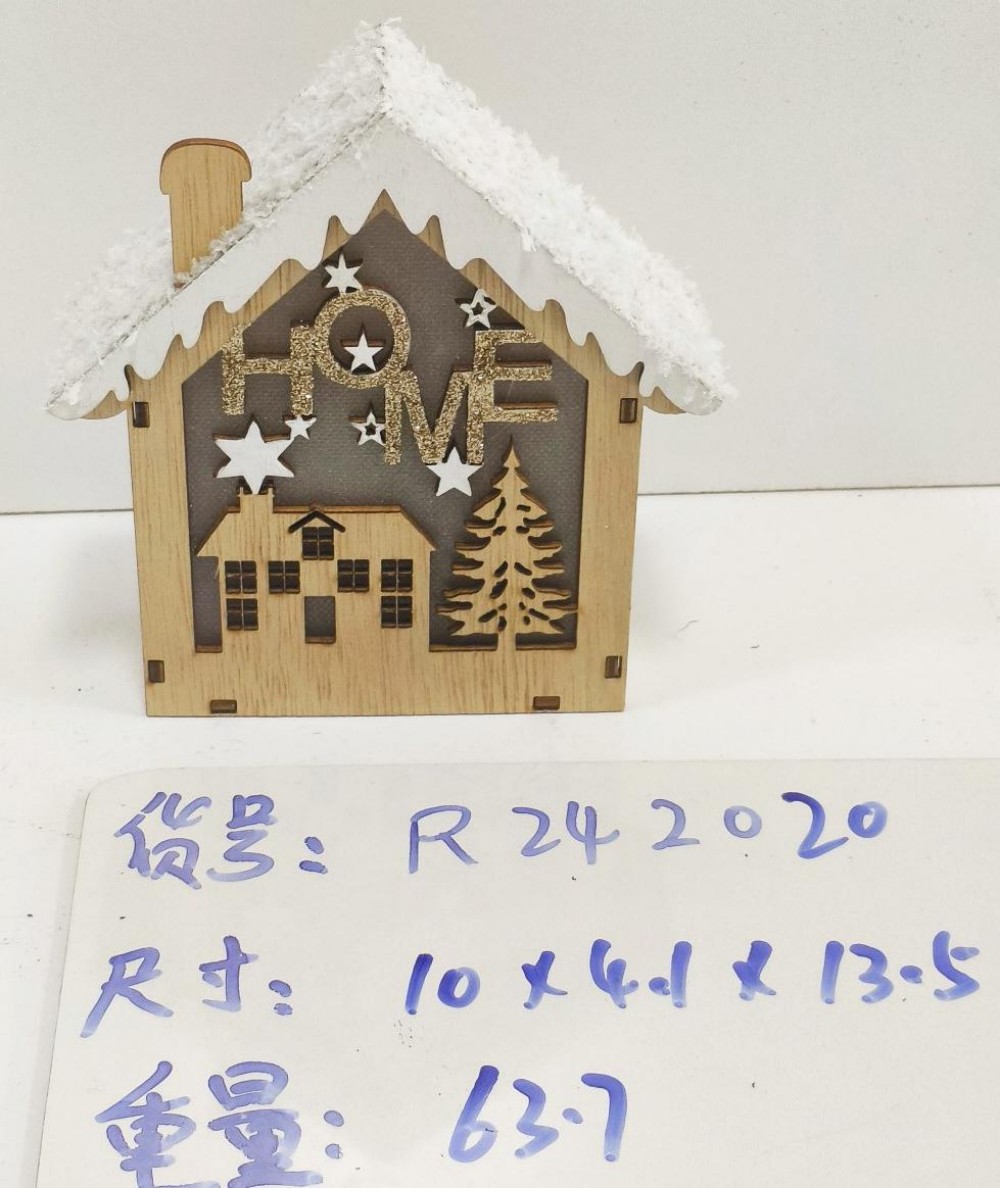 HOME
货号: R242020
尺寸: 10 x 4.1 x 13.5
重量: 63.7